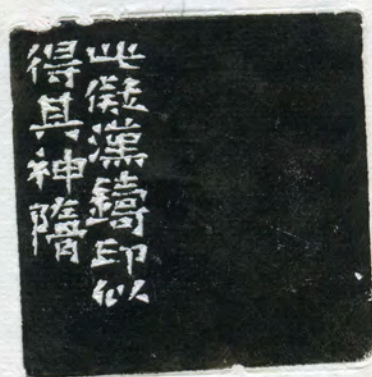 此儗漢鑄印似
得其神隨